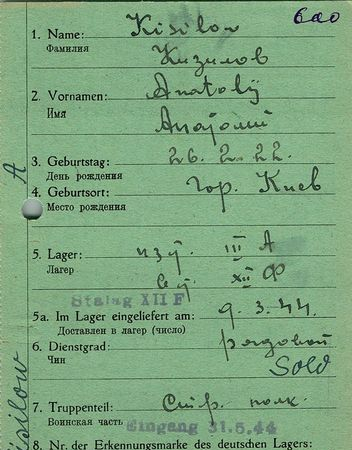 600
1. Name: Kisilow
Фамилия Кизилов
2. Vornamen: Anatolij
Имя Анатолий
3. Geburtstag: 26. 2. 22.
День рождения
4. Geburtsort: гор. Киев
Место рождения
A
5. Lager: из III А
Лагер XII Ф
Stalag XII F
5a. Im Lager eingeliefert am: 9. 3. 44.
Доставлен в лагер (число)
6. Dienstgrad: рядовой
Чин Sold
7. Truppenteil: полк.
Воинская часть Eingang 31.5.44
8. Nr. der Erkennungsmarke des deutschen Lagers:
Kisilow